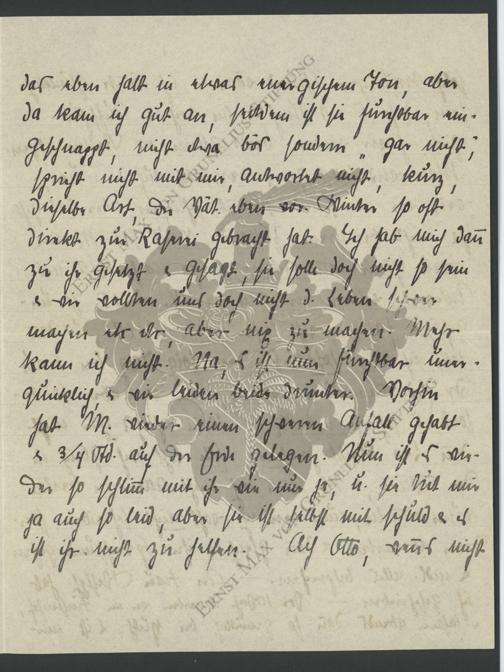 das eben halt in etwas energischem Ton, aber
da kam ich gut an, seitdem ist sie furchtbar ein-
geschnappt, nicht etwa bös sondern "gar nicht",
spricht nicht mit mir, antwortet nicht, kurz,
dieselbe Art, die Vat. eben vor. Winter so oft
direkt zur Raserei gebracht hat. Ich hab mich dann
zu ihr gesetzt & gesagt, sie solle doch nicht so sein
& wir wollten uns doch nicht d. Leben schwer
machen etc etc, aber nix zu machen. Mehr
kann ich nicht. Na, es ist nun furchtbar uner-
quicklich & wir leiden beide drunter. Vorhin
hat M. wieder einen schweren Anfall gehabt
& 3/4 Std. auf der Erde gelegen. Nun ist es wie-
der so schlimm mit ihr wie nur je, u. sie tut mir
ja auch so leid, aber sie ist selbst mit schuld & es
ist ihr nicht zu helfen. Ach Otto, wenn's nicht
ERNST MAX VON GRUNELIUS-STIFTUNG
ERNST MAX VON GRUNELIUS-STIFTUNG